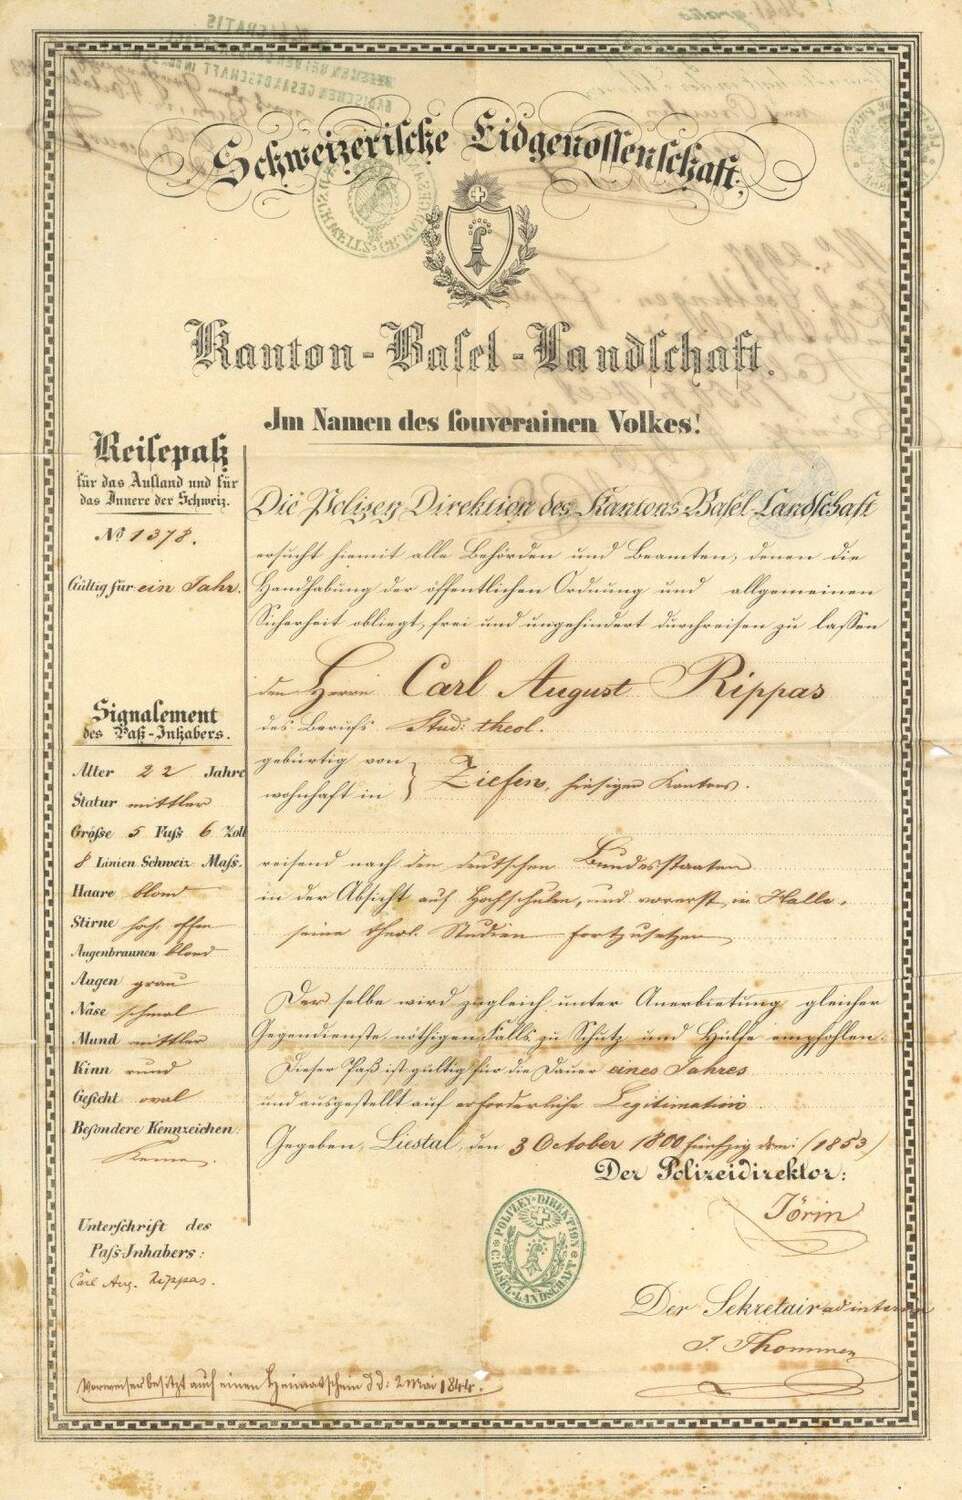 Schweizerische Eidgenossenschaft,
Kanton-Basel-Landschaft.
Im Namen des souverainen Volkes!
Reisepaß
für das Ausland und für
das Innere der Schweiz.
No 1378.
Gültig für ein Jahr.
Signalement
des Paß-Inhabers.
Alter 22 Jahre
Statur mittler
Größe 5 Fuß 6 Zoll
8 Linien Schweiz Maß.
Haare blond
Stirne hoch, offen
Augenbraunen blond
Augen grau
Nase schmal
Mund mittler
Kinn rund
Gesicht oval
Besondere Kennzeichen
Keine.
Unterschrift des
Paß-Inhabers:
Carl Aug. Rippas.
Die Polizey Direktion des Kantons Basel-Landschaft
ersucht hiemit alle Behörden und Beamten, denen die
Handhabung der öffentlichen Ordnung und allgemeinen
Sicherheit obliegt, frei und ungehindert durchreisen zu lassen
den Herrn Carl August Rippas
des Berufs Stud: theol.
gebürtig von
wohnhaft in } Ziefen, hiesigen Kantons.
reisend nach den deutschen Bundesstaaten
in der Absicht auf Hochschulen, und vorerst in Halle,
seine theol. Studien fortzusetzen
Derselbe wird zugleich unter Anerbietung gleicher
Gegendienste nöthigen Falls zu Schutz und Hülfe empfohlen.
Dieser Paß ist gültig für die Dauer eines Jahres
und ausgestellt auf erforderliche Legitimation
Gegeben, Liestal, den 3 October 1800 fünfzig drei (1853)
Der Polizeidirektor:
Jörin
POLIZEY-DIREKTION
C: BASEL-LANDSCHAFT
Der Sekretair ad interim
J. Thommen
Vorweiser besitzt auch einen Heimatschein d d: 2 Mai 1844.